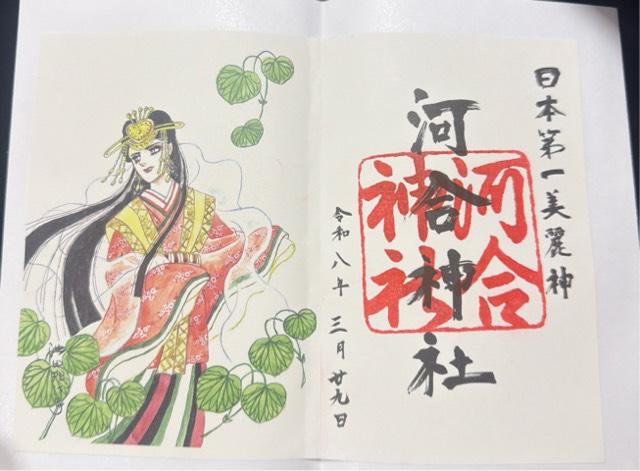 日本第一美麗神
河合神社
河合神社
令和八年 三月廿九日